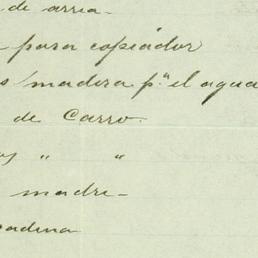 de arria.
para copiador
madera pª el agua
de Carro.
" "
madre-